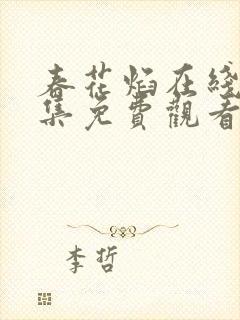 春花焰在綫
集免費觀看
李哲